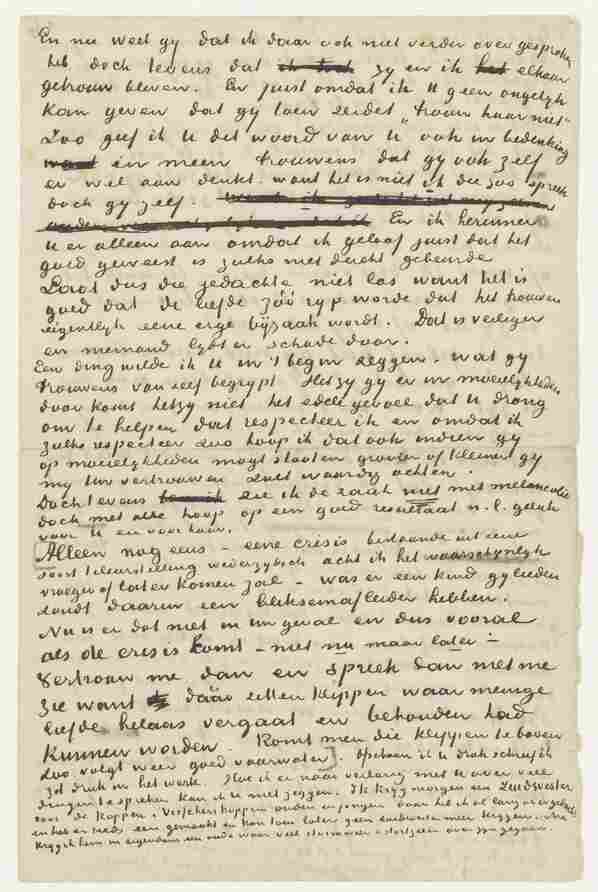 En nu weet gy dat ik daar ook niet verder over gesproken
heb doch tevens dat zy en ik elkaar
getrouw bleven. En juist omdat ik U geen ongelyk
kan geven dat gy toen zeidet „trouw haar niet"
Zoo geef ik U dit woord van U ook in bedenking
en meen trouwens dat gy ook zelf
er wel aan denkt. want het is niet ik die zoo spreek
doch gy zelf. En ik herinner
U er alleen aan omdat ik geloof juist dat het
goed geweest is zulks niet direkt gebeurde
Laat dus die gedachte niet los want het is
goed dat de liefde zóó ryp worde dat het trouwen
eigentlyk eene erge byzaak wordt. Dat is veiliger
en niemand lydt er schade door.
Een ding wilde ik U in 't begin zeggen. wat gy
trouwens van zelf begrypt Hetzy gy er in moeielykheden
door komt hetzy niet het edele gevoel dat U drong
om te helpen dat respecteer ik en omdat ik
zulks respecteer zoo hoop ik dat ook indien gy
op moeielykheden mogt stooten grooter of kleiner gy
my Uw vertrouwen zult waardig achten.
Doch tevens zie ik de zaak niet met melancolie
doch met alle hoop op een goed resultaat n.l. geluk
voor U en voor haar.
[Alleen nog eens – eene crisis bestaande uit eene
soort teleurstelling wederzydsch acht ik het waarschynlyk
vroeger of later komen zal – was er een kind gylieden
zoudt daarin een bliksemafleider hebben.
Nu is er dat niet in Uw geval en dus vooral
als de crisis komt – niet nu maar later –
vertrouw me dan en spreek dan met me
zie want dààr zitten klippen waar menige
liefde helaas vergaat en behouden had
kunnen worden. Komt men die klippen te boven
zoo volgt weer goed vaarwater]. Ofschoon ik U druk schryf ik
zit druk in het werk. Hoe ik er naar verlang met U over veel
dingen te spreken kan ik U niet zeggen. Ik kryg morgen een Zuidwester
voor de koppen. Visscherskoppen ouden en jongen daar heb ik al lang over gedacht
en heb er reeds een gemaakt en kon toen later geen zuidwester meer krygen. Nu
kryg ik hem in eigendom een oude waar veel stormen en stortzeeen over zyn gegaan.